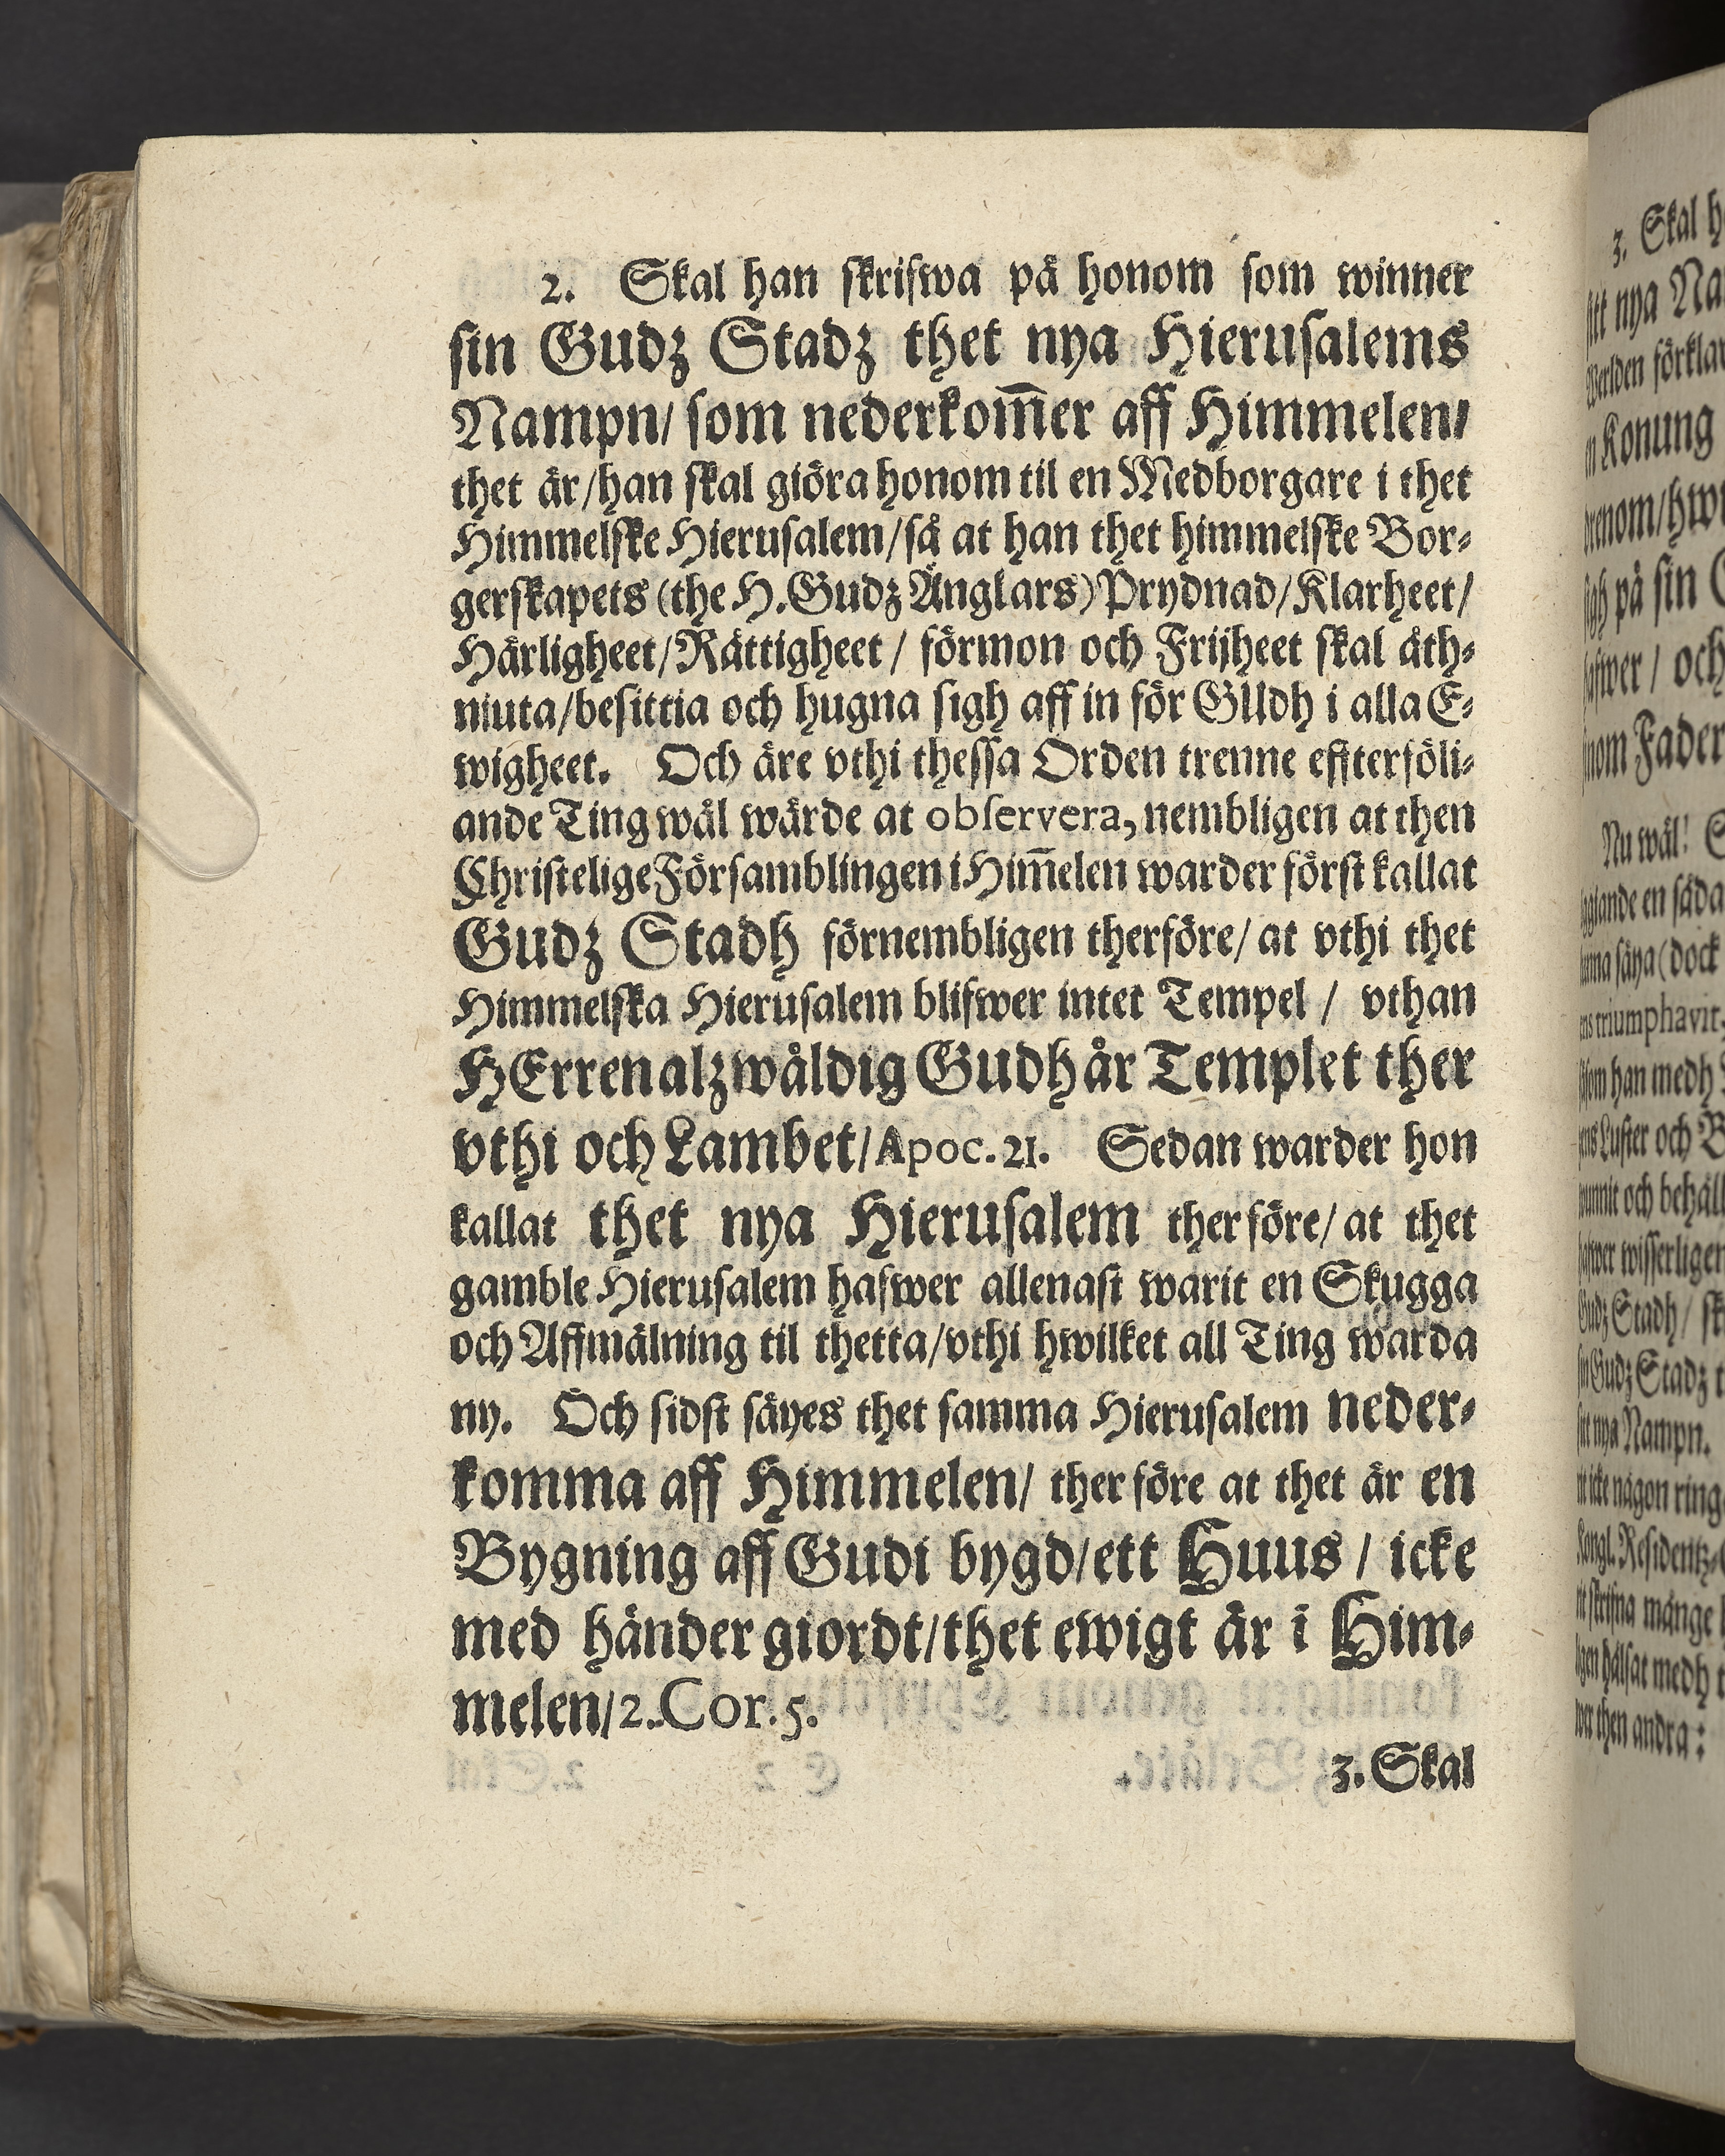 2. Skal han skrifwa på honom som winner
sin Gudz Stadz thet nya Hierusalems
Nampn/ som nederkom̅er aff Himmelen/
thet är/han skal giöra honom til en Medborgare i thet
Himmelske Hierusalem/så at han thet himmelske Bor-
gerskapets (the H. Gudz Änglars) Prydnad/Klarheet/
Härligheet/Rättigheet / förmon och Frijheet skal åth-
niuta/besittia och hugna sigh aff in för GUdh i alla E-
wigheet. Och äre vthi thessa Orden trenne effterföli-
ande Ting wäl wärde at observera, nembligen at then
Christelige Församblingen i Him̅elen warder först kallat
Gudz Stadh förnembligen therföre/ at vthi thet
Himmelska Hierusalem blifwer intet Tempel / vthan
HErren alzwåldig Gudh år Templet ther
vthi och Lambet/Apoc. 21. Sedan warder hon
kallat thet nya Hierusalem therföre/ at thet
gamble Hierusalem hafwer allenast warit en Skugga
och Affmålning til thetta/vthi hwilket all Ting warda
ny. Och sidst säyes thet samma Hierusalem neder-
komma aff Himmelen/ therföre at thet är en
Bygning aff Gudi bygd/ett Huus / icke
med händer giordt/thet ewigt är i Him-
melen/2. Cor. 5.
3. Skal
3. Skal h
nya Na
förklar
Konung
på sin
/ och
Fader
Nu wäl! S
en såda
säya (dock
triumphavit,
som han medh
Luster och B
och behåll
wisserligen
Gudz Stadh / sk
Gudz Stadz t
nya Nampn.
icke någon ring
Kongl. Residentz-
månge
hälsat medh t
then andra :